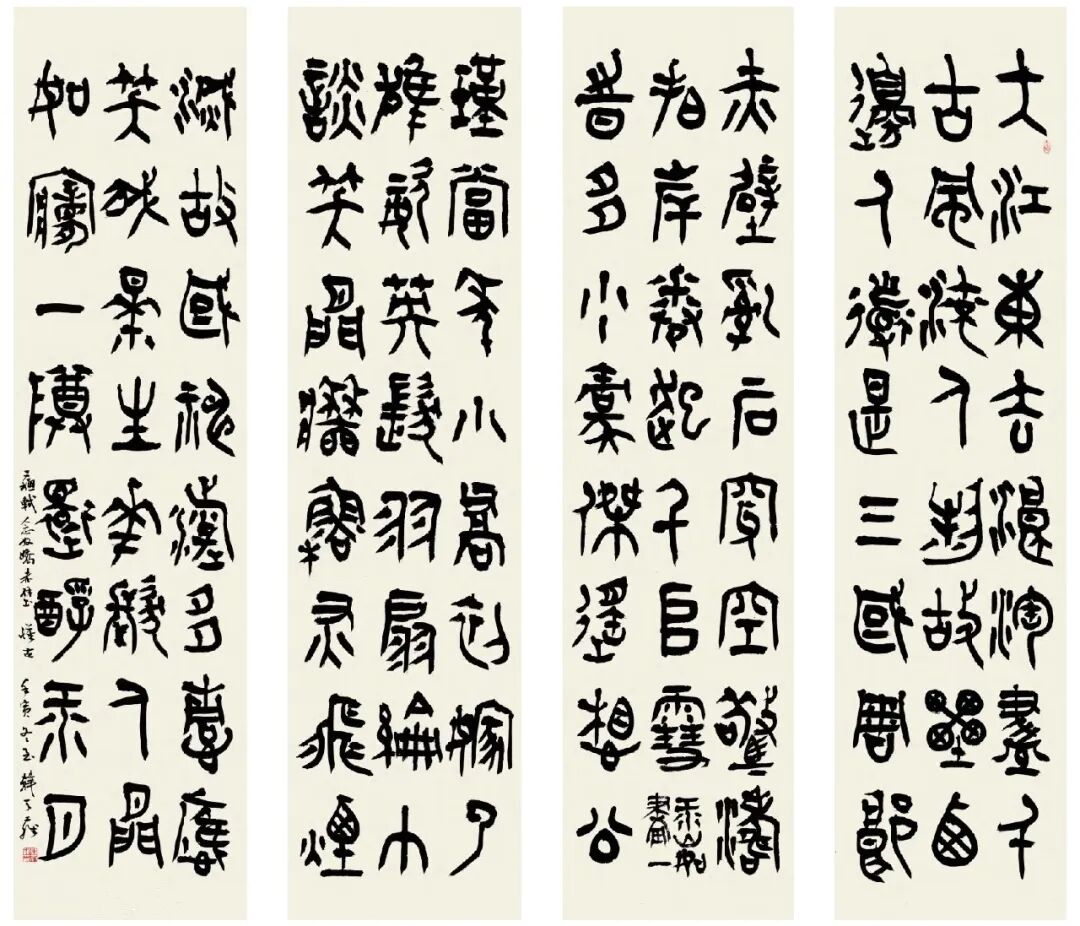 大江東去浪淘盡千
古風流人物故壘西
邊人道是三國周郎
赤壁亂石穿空驚濤
拍岸卷起千堆雪江山如畫一
時多少豪傑遙想公
瑾當年小喬初嫁了
雄姿英發羽扇綸巾
談笑間檣櫓灰飛煙
滅故國神遊多情應
笑我早生華髮人間
如夢一尊還酹江月
蘇軾念奴嬌赤壁懷古 壬寅冬至 韓天雍